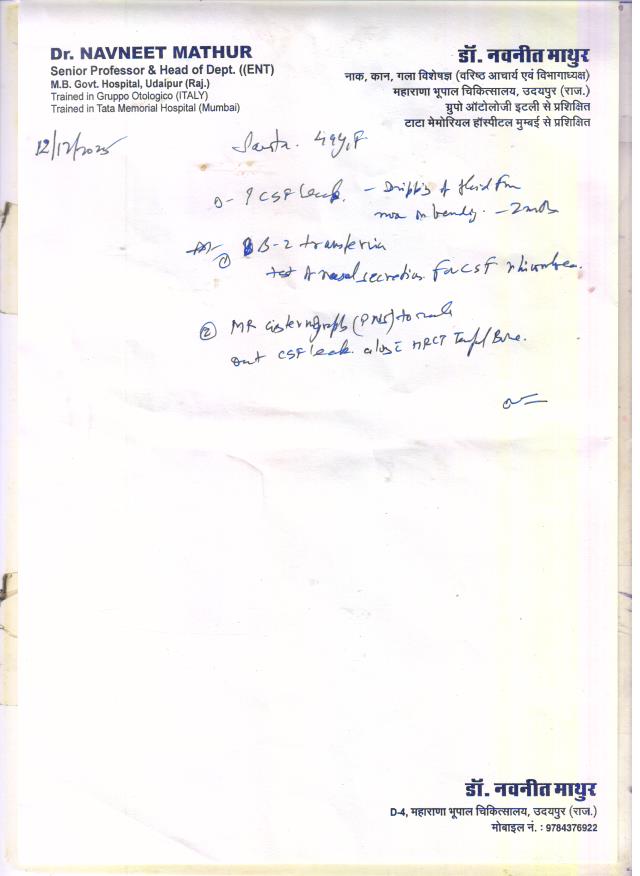 Dr. NAVNEET MATHUR
Senior Professor & Head of Dept. ((ENT)
M.B. Govt. Hospital, Udaipur (Raj.)
Trained in Gruppo Otologico (ITALY)
Trained in Tata Memorial Hospital (Mumbai)
डॉ. नवनीत माथुर
नाक, कान, गला विशेषज्ञ (वरिष्ठ आचार्य एवं विभागाध्यक्ष)
महाराणा भूपाल चिकित्सालय, उदयपुर (राज.)
ग्रुपो ऑटोलोजी इटली से प्रशिक्षित
टाटा मेमोरियल हॉस्पीटल मुम्बई से प्रशिक्षित
12/12/2025
49y, F
? CSF leak. - of fluid from
on bending. - 2
① B-2 transferrin
test of nasal secretion for CSF rhinorrhea.
② MR cisternography (PNS) to rule
out CSF leak. HRCT Bone.
डॉ. नवनीत माथुर
D-4, महाराणा भूपाल चिकित्सालय, उदयपुर (राज.)
मोबाइल नं. : 9784376922